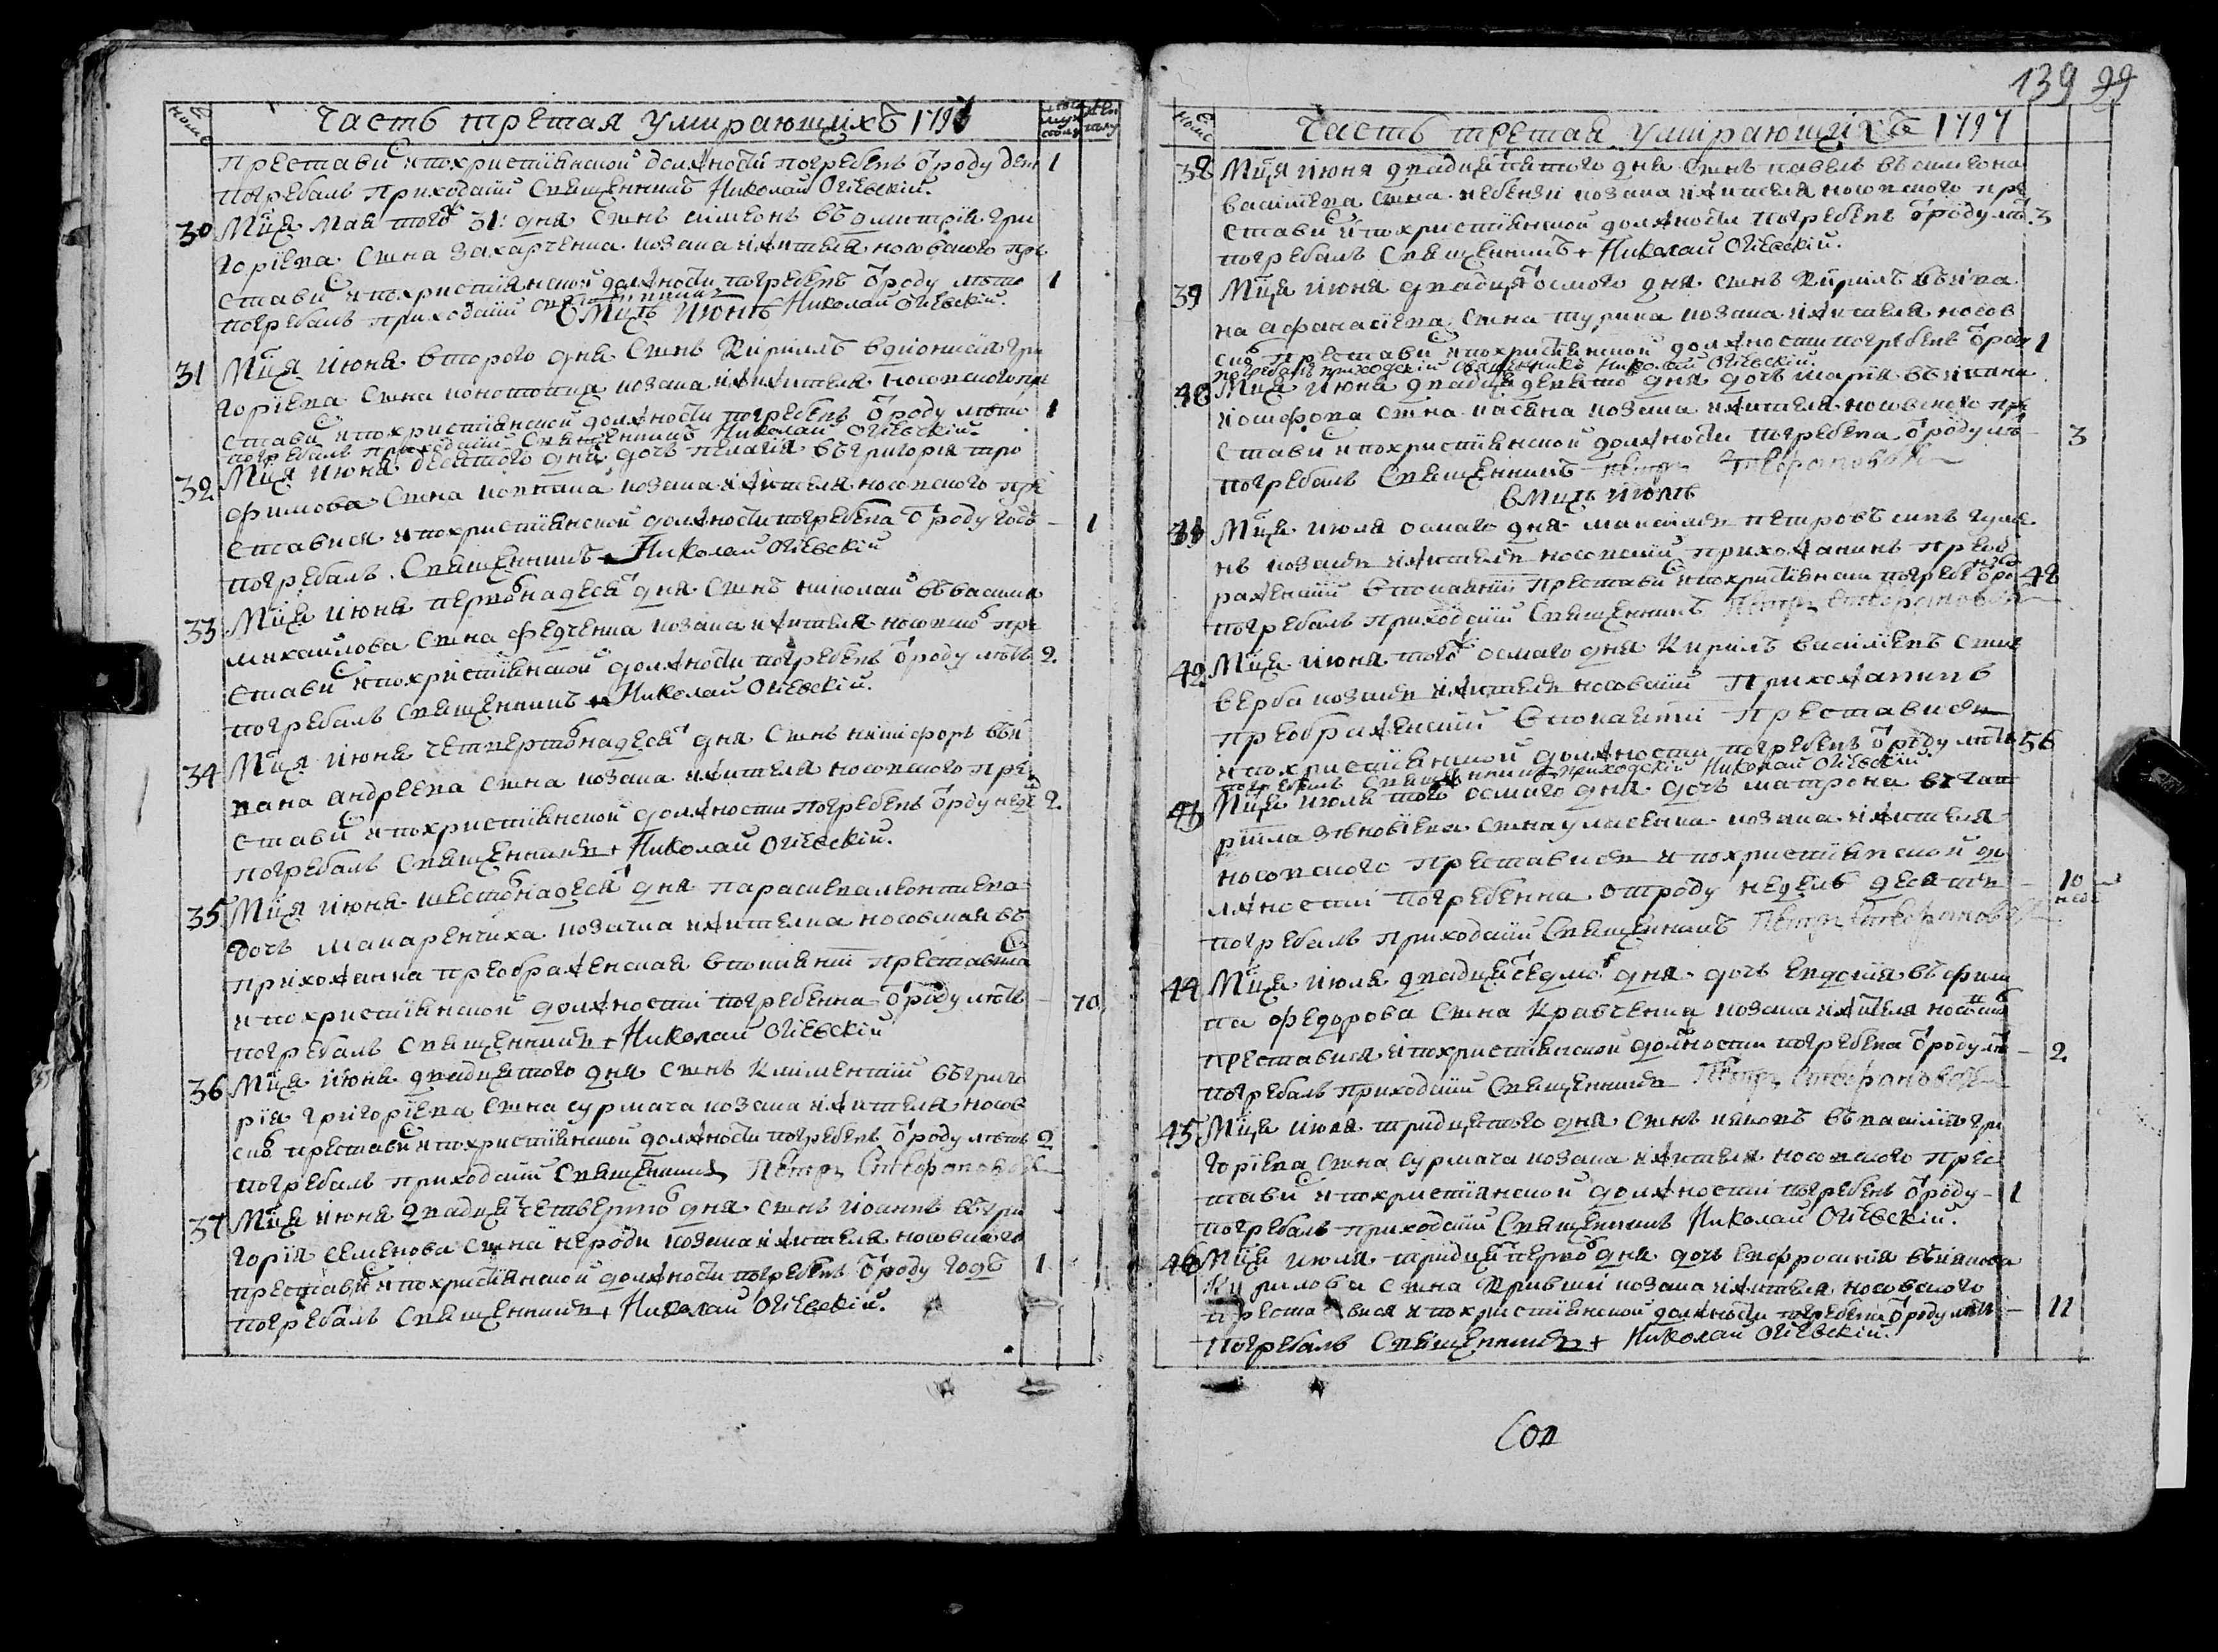 Часть третая умирающихъ 1797
номе
преставис и похристиянской должности погребенъ от роду ден 1
погребалъ приходский священникъ Николай Огиевскій.
30 Мца мая того 31: дня сынъ симеонъ въ димитрія гри
горіева сына захарченка козака и жителя носовского пре
ставис и похристиянской должности погребенъ от роду лето 1
погребалъ приходский священникъ Николай Огиевскій.
В Мцъ Июнь
31 Мца июня второго дня сынъ Кирилъ в дионисія гри
горіева сына козака и жителя носовского пре
ставис и похристиянской должности погребенъ от роду лето 1
погребалъ приходский священникъ Николай Огиевскій.
32 Мца июня десятого дня дочь пелагія въ григорія тро
фимова сына козака и жителя носовского пре
ставися и похристиянской должности погребена от роду годъ - 1
погребалъ священникъ Николай Огиевскій
33 Мца июня первонадесят дня сынъ николай въ василия
михайлова сына федченка козака и жителя носовско пре
ставис и похристиянской должности погребенъ от роду летъ 2.
погребалъ священникъ Николай Огиевскій.
34 Мца июня четвертонадесят дня сынъ никифоръ въ и
вана андреева сына козака и жителя носовского пре
ставис и похристиянской должности погребенъ от роду недел 2.
погребалъ священникъ + Николай Огиевскій.
35 Мца июня шестонадесят дня параскева леонтиева
дочь макаренчиха козачка и жителка носовская въ
прихожанка преображенская в покаянии преставис
и похристиянской должности погребенна от роду летъ - 70
погребалъ священникъ + Николай Огиевскій
36 Мца июня двадцятого дня сынъ климентий въ григо
рія григоріева сына сурмача козака и жителя носов
ско преставис и похристиянской должности погребенъ от роду летъ 2
погребалъ приходский священникъ Петръ Стефановский
37 Мца июня двадцят четверто дня сынъ иоаннъ въ гри
горія семенова сына нероди козака и жителя носовского
преставис и похристиянской должности погребенъ от роду годъ 1
погребалъ священникъ + Николай Огиевскій.
139 99
номе
Часть третая умирающихъ 1797
38 Мца июня двадцят пятого дня сынъ павелъ въ симеона
василиева сына козака и жителя носовского пре
ставис и похристиянской должности погребенъ от роду лет. 3
погребалъ священникъ + Николай Огиевскій.
39 Мца июня двадцят осмого дня сынъ Кирилъ въ ива
на афанасиева сына турика козака и жителя носов
ско преставис и похристиянской должности погребенъ от роду 1
погребалъ приходский священникъ Николай Огиевскій.
40 Мца июня двадцят девято дня дочь мария въ ивана
иосифова сына козака и жителя носовского пре
ставис и похристиянской должности погребена от роду ле - 3
погребалъ священникъ Петръ Стефановский
в Мцъ июль
41 Мца июля осмаго дня петровъ синъ
козакъ и житель носовский прихожанинъ преоб
раженский в покаянии преставис и похристиянски погребен от ро 42
погребалъ приходский священникъ Петръ Стефановский
42 Мца июня того осмаго дня Кирилъ василиевъ сынъ
верба козакъ и житель носовский прихожанинъ
преображенский в покаянии преставися
и похристиянской должности погребенъ от роду летъ 56
погребалъ священникъ приходский Николай Огиевскій
43 Мца июля того осмаго дня дочь матрона въ гав
риила зеновіева сына козака и жителя
носовского преставися и похристиянской до
лжности погребенна от роду недель десять - 10 неде
погребалъ приходский священникъ Петръ Стефановский
44 Мца июля двадцят седмо дня дочь евдокія въ фили
па федорова сына Кравченка козака и жителя носовско
преставися и похристиянской должности погребена от роду ле - 2
погребалъ приходский священникъ Петръ Стефановский
45 Мца июля тридцятого дня сынъ иаковъ въ василія гри
горіева сына сурмача козака и жителя носовского прес
тавис и похристиянской должности погребенъ от роду - 1
погребалъ приходский священникъ Николай Огиевскій.
46 Мца июля тридцят перво дня дочь евфросинія въ иякова
Кирилова сына Кривши козака и жителя носовского
преставися и похристиянской должности погребена от роду летъ - 11
погребалъ священникъ + Николай Огиевскій.